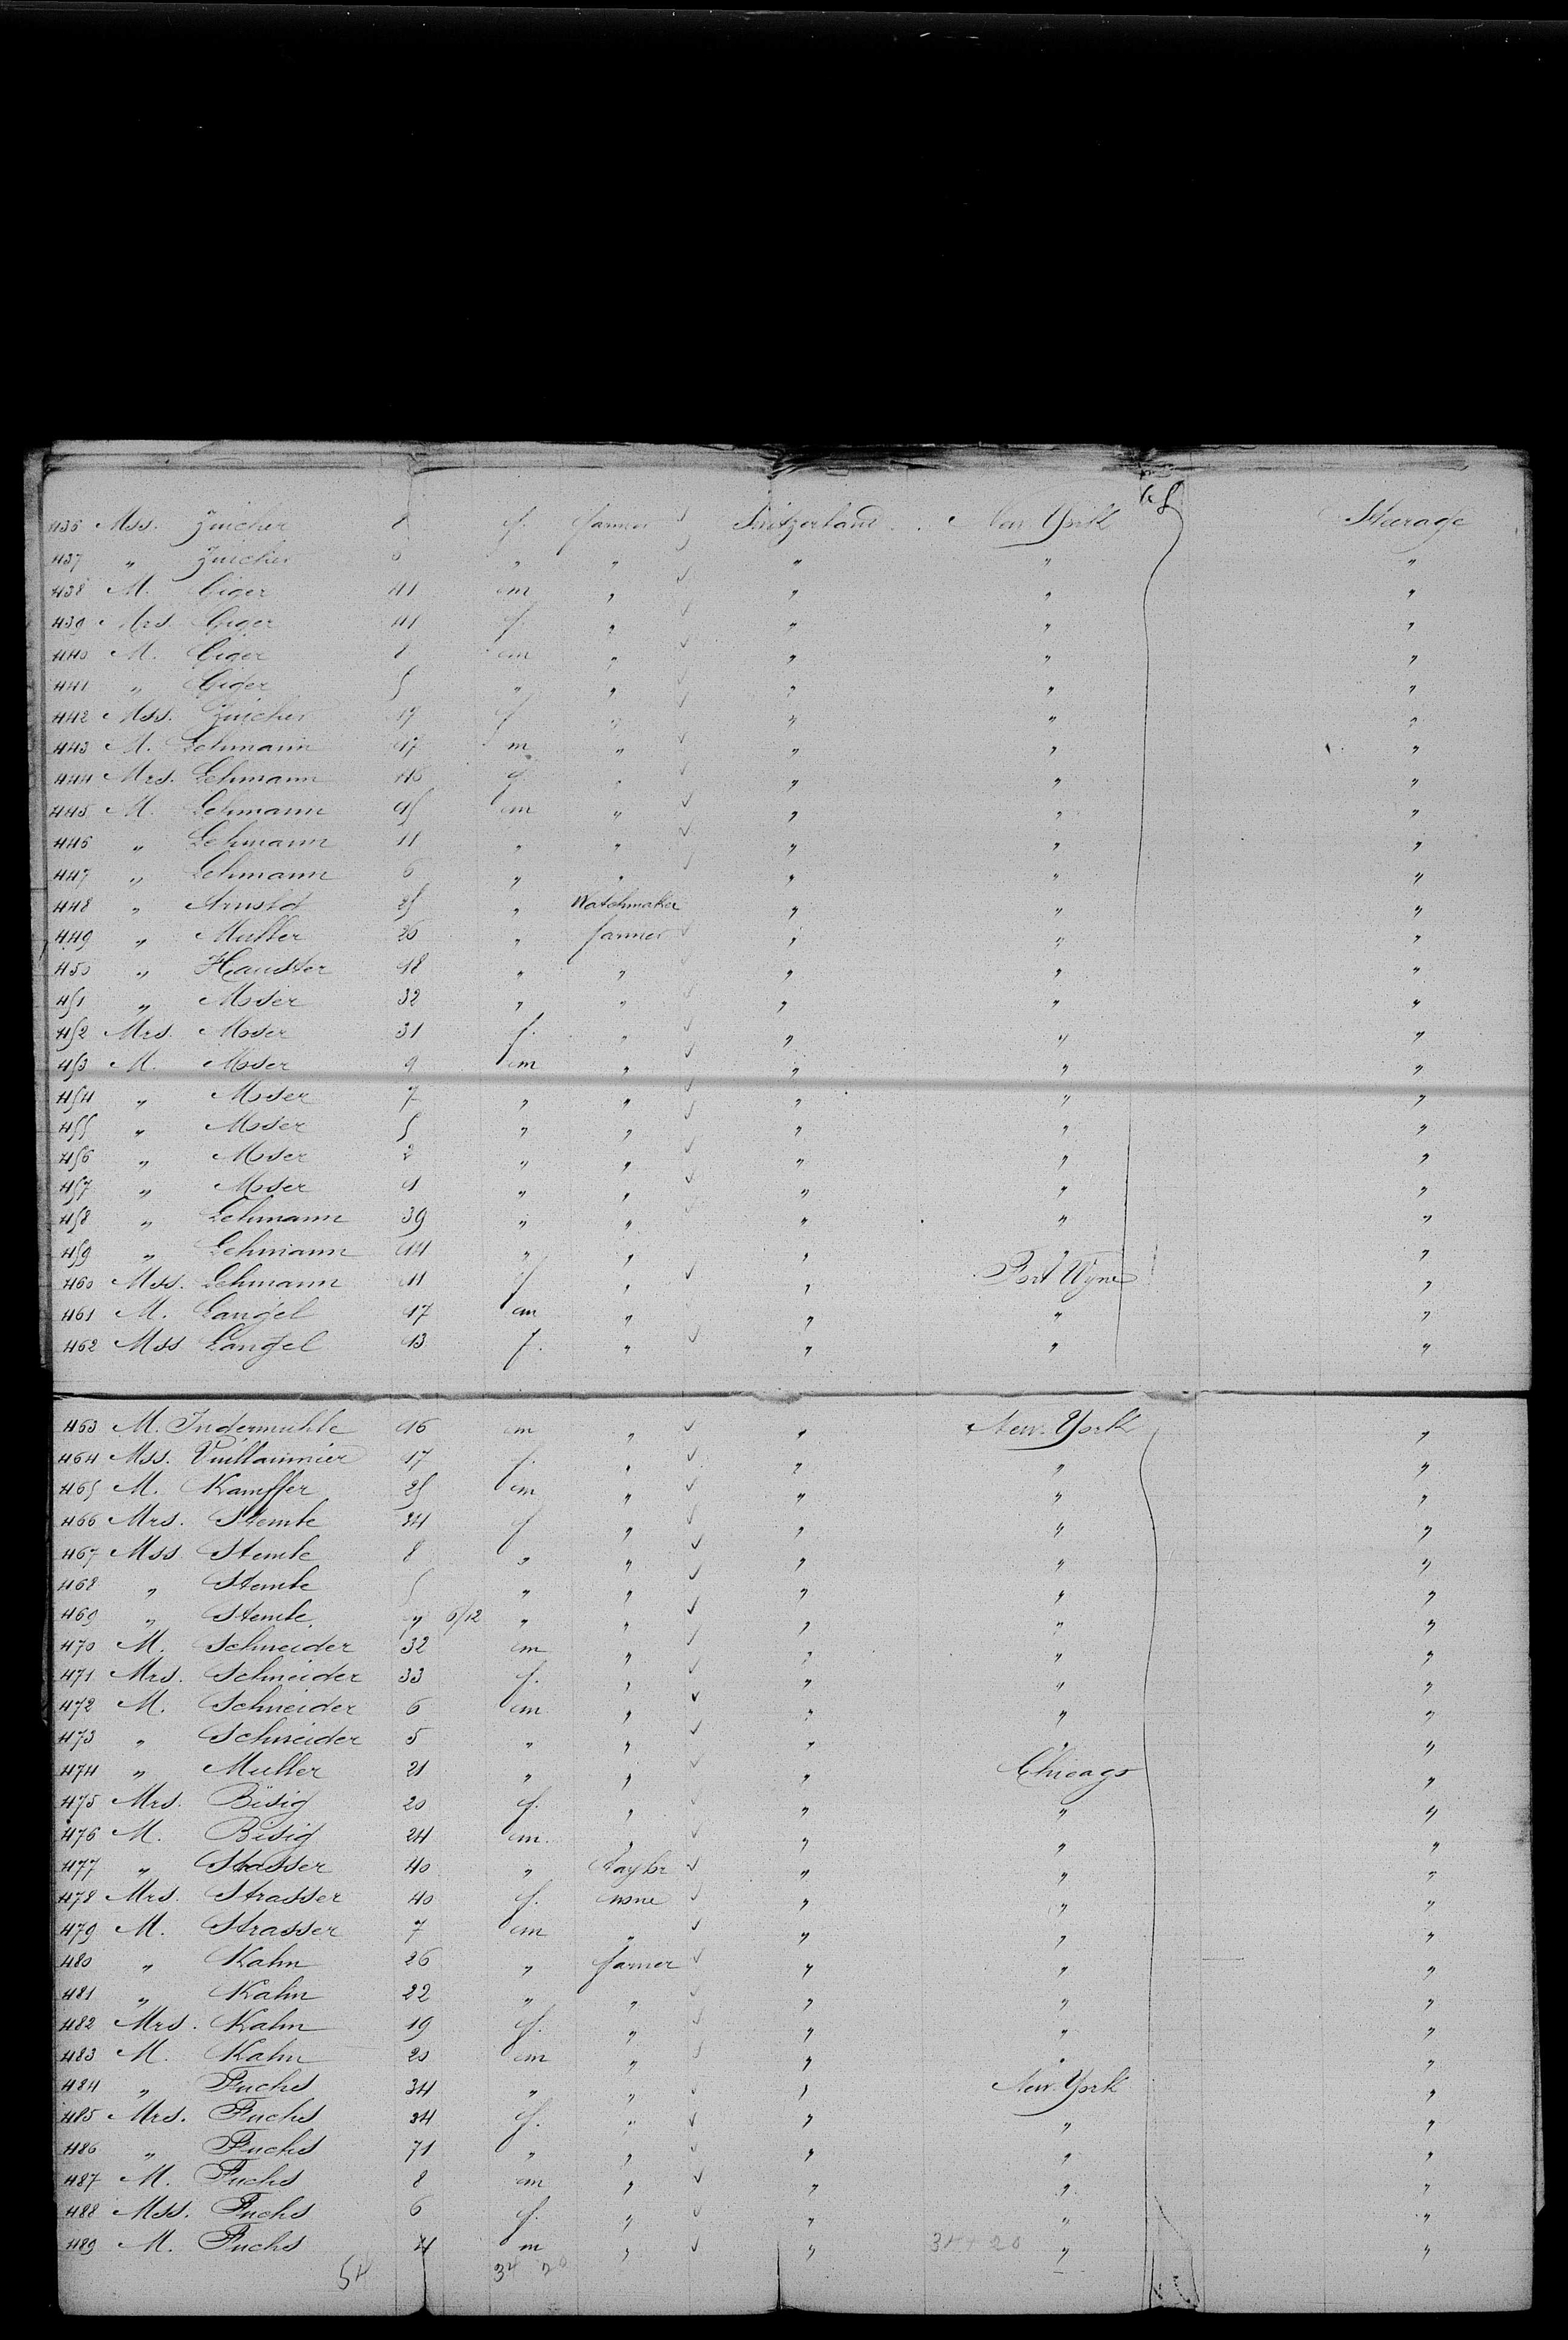 436 Mss. Zuicher 8 f. farmer Switzerland New York Steerage
437 „ Zuicher „ „ „ „ „
438 M. Giger 41 m „ „ „ „
439 Mrs. Giger 41 f. „ „ „ „
440 M. Giger 8 m „ „ „ „
441 „ Giger 5 „ „ „ „ „
442 Mss. Zuicher 17 f „ „ „ „
443 M. Lehmann 47 m „ „ „ „
444 Mrs. Lehmann 46 f „ „ „ „
445 M. Lehmann 15 m „ „ „ „
446 „ Lehmann 11 „ „ „ „ „
447 „ Lehmann 6 „ „ „ „ „
448 „ Arnold 25 „ Watchmaker „ „ „
449 „ Muller 20 „ farmer „ „ „
450 „ Hauster 18 „ „ „ „ „
451 „ Moser 32 „ „ „ „ „
452 Mrs. Moser 31 f. „ „ „ „
453 M. Moser 9 m „ „ „ „
454 „ Moser 7 „ „ „ „ „
455 „ Moser 5 „ „ „ „ „
456 „ Moser 2 „ „ „ „ „
457 „ Moser 1 „ „ „ „ „
458 „ Lehmann 39 „ „ „ „ „
459 „ Lehmann 14 „ „ „ „ „
460 Mss. Lehmann 11 f „ „ Fort Wyne „
461 M. Langel 17 m „ „ „ „
462 Mss Langel 13 f. „ „ „ „
463 M. Indermuhle 16 m „ „ New. York „
464 Mss. Vuillaumier 17 f. „ „ „ „
465 M. Kamffer 25 m „ „ „ „
466 Mrs. Stemle 34 f „ „ „ „
467 Mss Stemle 8 „ „ „ „ „
468 „ Stemle 5 „ „ „ „ „
469 „ Stemle „ 6/12 „ „ „ „ „
470 M. Schneider 32 m „ „ „ „
471 Mrs. Schneider 33 f. „ „ „ „
472 M. Schneider 6 m „ „ „ „
473 „ Schneider 5 „ „ „ „ „
474 „ Muller 21 „ „ „ Chicago „
475 Mrs. Bisig 20 f. „ „ „ „
476 M. Bisig 24 m. „ „ „ „
477 „ Stasser 40 „ Taylor „ „ „
478 Mrs. Strasser 40 f. none „ „ „
479 M. Strasser 7 m „ „ „ „
480 „ Kahn 26 „ farmer „ „ „
481 „ Kahn 22 „ „ „ „ „
482 Mrs. Kahn 19 f. „ „ „ „
483 M. Kahn 20 m „ „ „ „
484 „ Fuchs 34 „ „ „ New. York „
485 Mrs. Fuchs 34 f. „ „ „ „
486 „ Fuchs 71 „ „ „ „ „
487 M. Fuchs 8 m „ „ „ „
488 Mss. Fuchs 6 f. „ „ „ „
489 M. Fuchs 4 m „ „ „ „
54 34 20